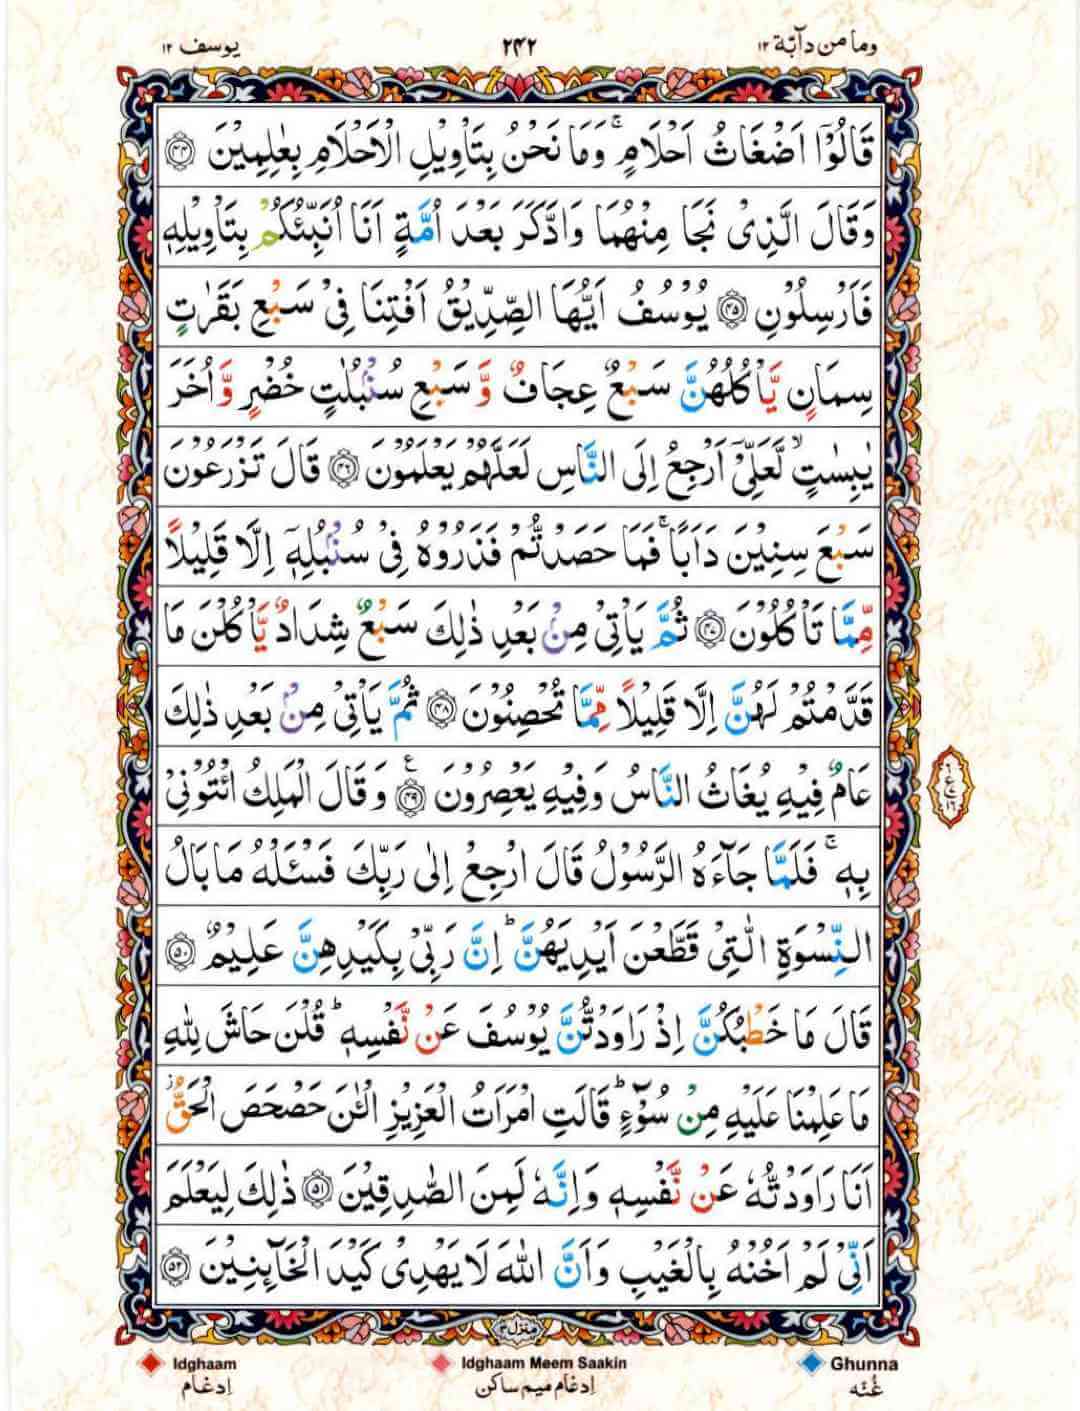 وما من دآبّة ١٢
٢٤٢
يوسف ١٢
قَالُوْۤا اَضْغَاثُ اَحْلَامٍ ۚ وَمَا نَحْنُ بِتَاْوِيْلِ الْاَحْلَامِ بِعٰلِمِيْنَ ﴿۴۴﴾
وَقَالَ الَّذِىْ نَجَا مِنْهُمَا وَادَّكَرَ بَعْدَ اُمَّةٍ اَنَا اُنَبِّئُكُمْ بِتَاْوِيْلِهٖ
فَاَرْسِلُوْنِ ﴿۴۵﴾ يُوْسُفُ اَيُّهَا الصِّدِّيْقُ اَفْتِنَا فِىْ سَبْعِ بَقَرٰتٍ
سِمَانٍ يَّاْكُلُهُنَّ سَبْعٌ عِجَافٌ وَّ سَبْعِ سُنْۢبُلٰتٍ خُضْرٍ وَّاُخَرَ
يٰبِسٰتٍ ۙ لَّعَلِّىْۤ اَرْجِعُ اِلَى النَّاسِ لَعَلَّهُمْ يَعْلَمُوْنَ ﴿۴۶﴾ قَالَ تَزْرَعُوْنَ
سَبْعَ سِنِيْنَ دَاَبًا ۚ فَمَا حَصَدْتُّمْ فَذَرُوْهُ فِىْ سُنْۢبُلِهٖۤ اِلَّا قَلِيْلًا
مِّمَّا تَاْكُلُوْنَ ﴿۴۷﴾ ثُمَّ يَاْتِىْ مِنْۢ بَعْدِ ذٰلِكَ سَبْعٌ شِدَادٌ يَّاْكُلْنَ مَا
قَدَّمْتُمْ لَهُنَّ اِلَّا قَلِيْلًا مِّمَّا تُحْصِنُوْنَ ﴿۴۸﴾ ثُمَّ يَاْتِىْ مِنْۢ بَعْدِ ذٰلِكَ
عَامٌ فِيْهِ يُغَاثُ النَّاسُ وَفِيْهِ يَعْصِرُوْنَ ﴿۴۹﴾ ع وَقَالَ الْمَلِكُ ائْتُوْنِىْ
بِهٖ ۚ فَلَمَّا جَآءَهُ الرَّسُوْلُ قَالَ ارْجِعْ اِلٰى رَبِّكَ فَسْـَٔلْهُ مَا بَالُ
النِّسْوَةِ الّٰتِىْ قَطَّعْنَ اَيْدِيَهُنَّ ؕ اِنَّ رَبِّىْ بِكَيْدِهِنَّ عَلِيْمٌ ﴿۵۰﴾
قَالَ مَا خَطْبُكُنَّ اِذْ رَاوَدْتُّنَّ يُوْسُفَ عَنْ نَّفْسِهٖ ؕ قُلْنَ حَاشَ لِلّٰهِ
مَا عَلِمْنَا عَلَيْهِ مِنْ سُوْٓءٍ ؕ قَالَتِ امْرَاَتُ الْعَزِيْزِ الْـٰٔنَ حَصْحَصَ الْحَقُّ ز
اَنَا رَاوَدْتُّهٗ عَنْ نَّفْسِهٖ وَاِنَّهٗ لَمِنَ الصّٰدِقِيْنَ ﴿۵۱﴾ ذٰلِكَ لِيَعْلَمَ
اَنِّىْ لَمْ اَخُنْهُ بِالْغَيْبِ وَاَنَّ اللّٰهَ لَا يَهْدِىْ كَيْدَ الْخَآئِنِيْنَ ﴿۵۲﴾
منزل ۳
Idghaam
Idghaam Meem Saakin
Ghunna
اِدغام
اِدغام میم ساکن
غُنّہ